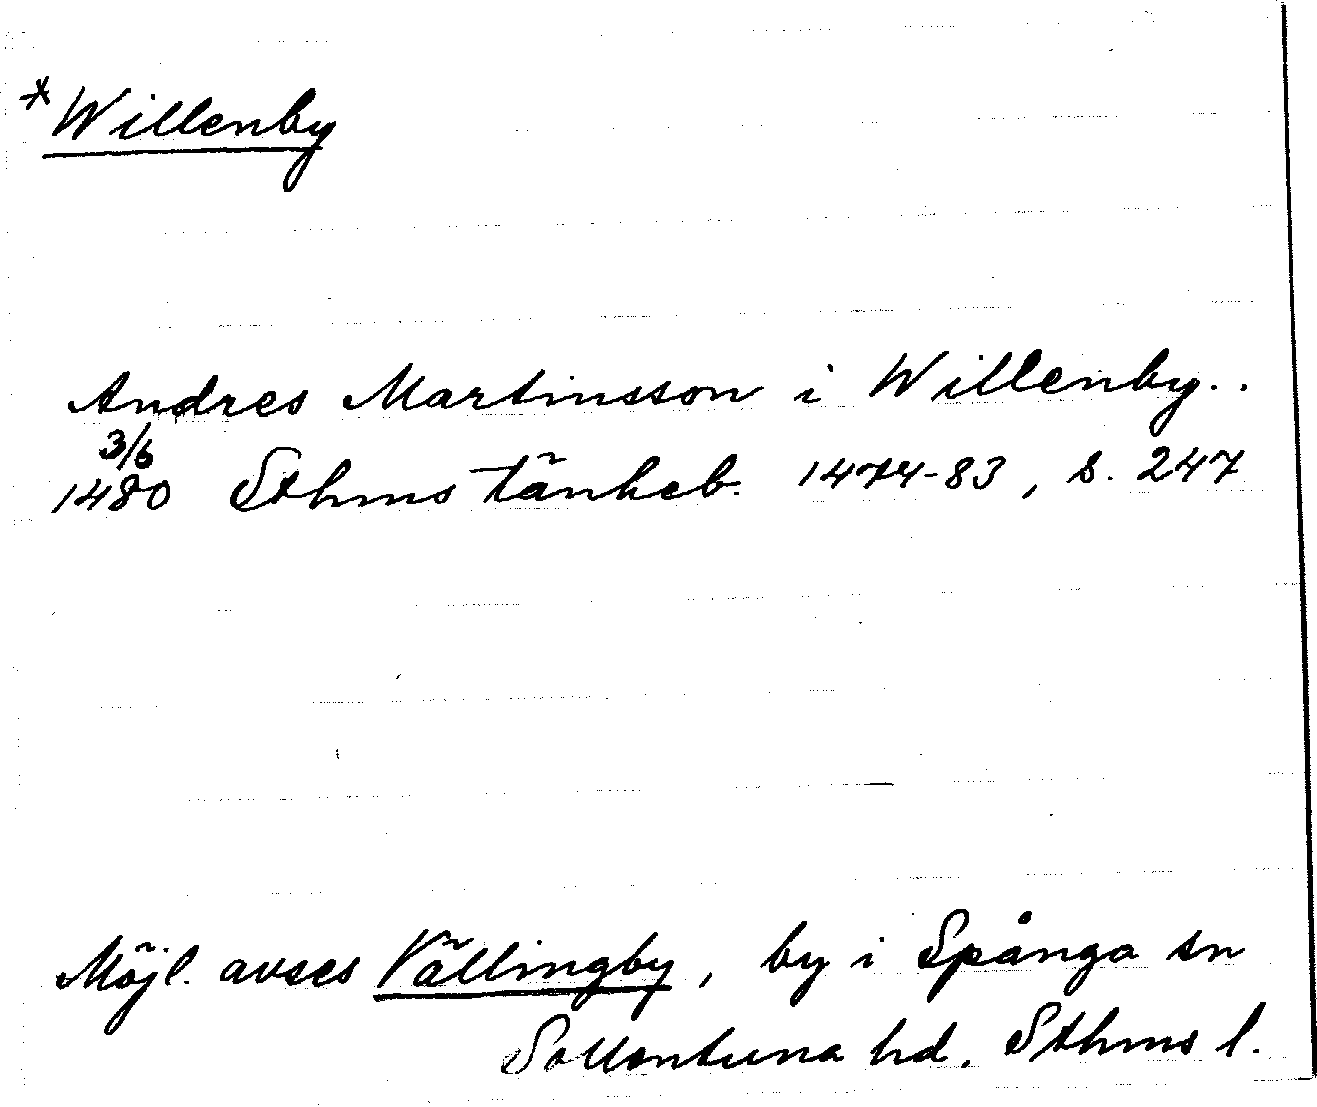 *Willenby
Andres Martinsson i Willenby..
3/6
1480 Sthms tänkeb. 1474-83, s. 247
Möjl. avses Vällingby, by i Spånga sn
Sollentuna hd. Sthms l.